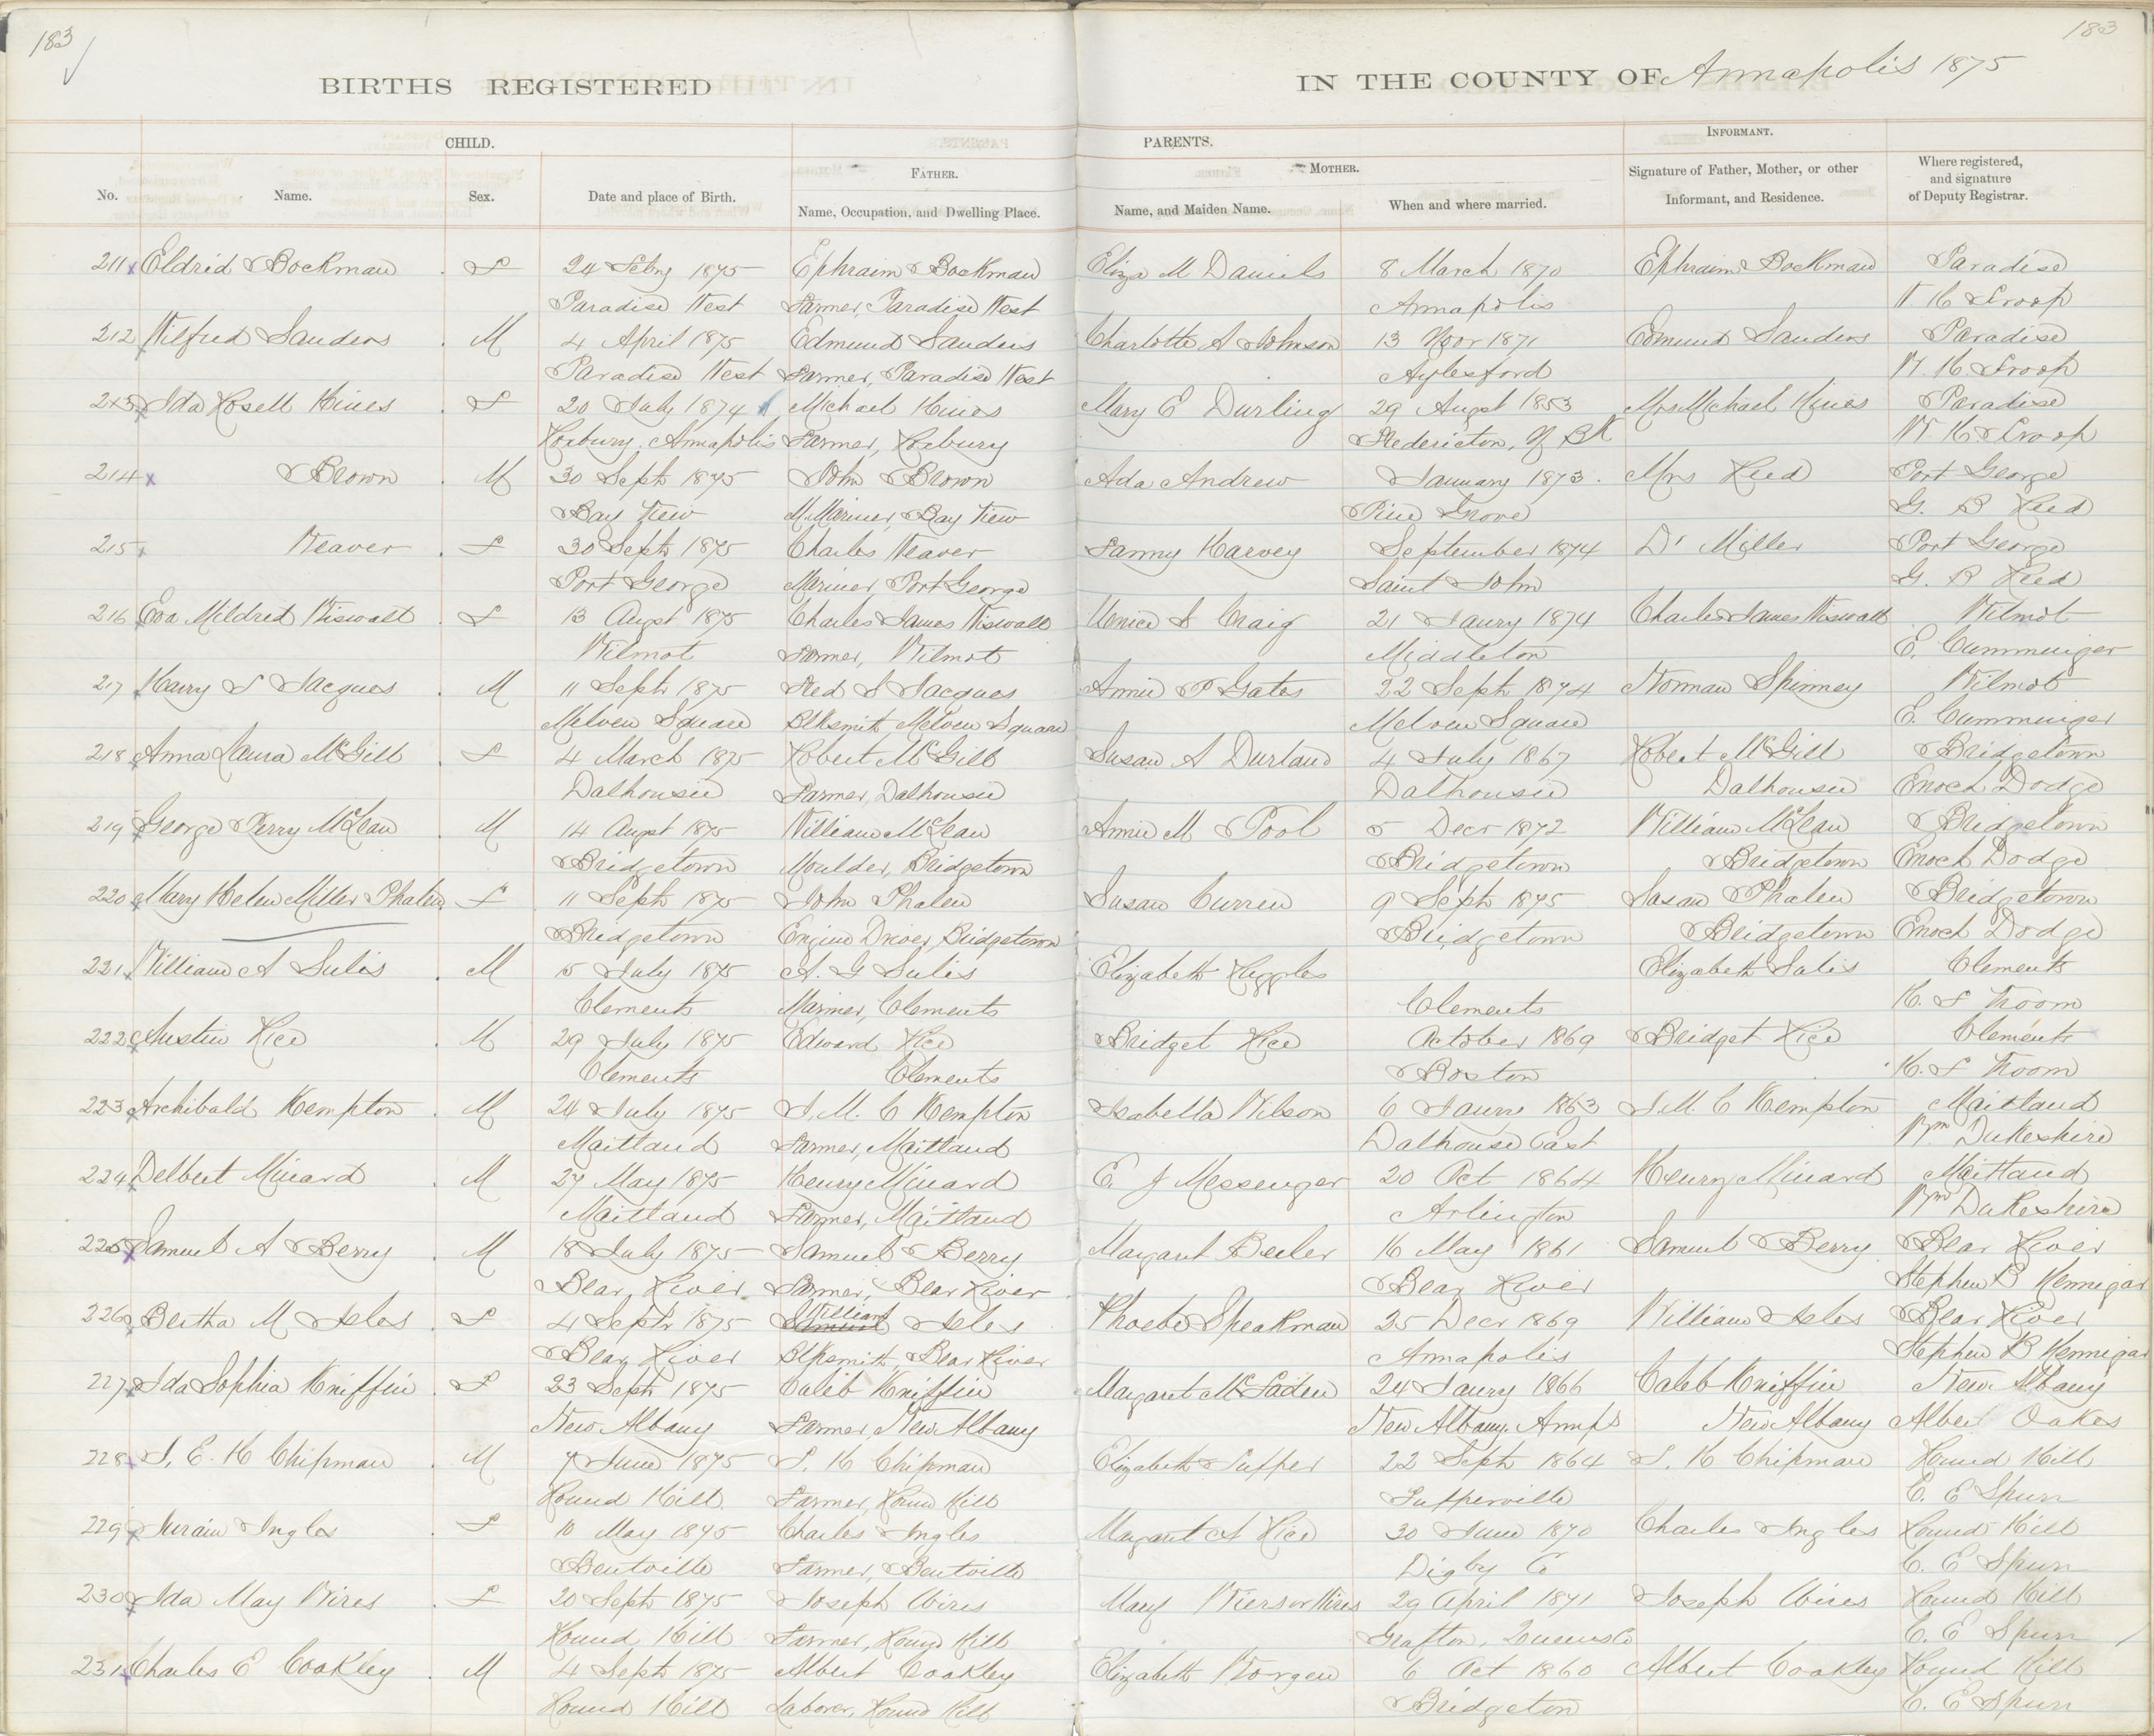 183
183
BIRTHS REGISTERED IN THE COUNTY OF Annapolis 1875
CHILD. PARENTS. INFORMANT.
FATHER. MOTHER.
No. Name. Sex. Date and place of Birth. Name, Occupation, and Dwelling Place. Name, and Maiden Name. When and where married. Signature of Father, Mother, or other Informant, and Residence. Where registered, and signature of Deputy Registrar.
211 Eldrid Bockman F 24 1875 Ephraim Bockman Eliza M Daniels 8 March 1870 Ephraim Bockman Paradise
Paradise West Farmer, Paradise West Annapolis W H Troop
212 Wilfred Sanders M 4 April 1875 Edmund Sanders Charlotte A Johnson 13 Novr 1871 Edmund Sanders Paradise
Paradise West Farmer, Paradise West Aylesford W. H Troop
213 Ida Rosell Hines F 20 July 1874 Michael Hines Mary E Durling 29 Augst 1853 Mrs Michael Hines Paradise
Roxbury, Annapolis Farmer, Roxbury Fredericton, N BK W. H Troop
214 Brown M 30 Septr 1875 John Brown Ada Andrew January 1873. Mrs Reed Port George
Bay View M. Mariner, Bay View Pine Grove G. B Reed
215 Weaver F 30 Septr 1875 Charles Weaver Fanny Harvey September 1874 Dr Miller Port George
Port George Mariner, Port George Saint John G. B Reed
216 Eva Mildred Wiswall F 13 Augst 1875 Charles James Wiswall Unice I Craig 21 Jaury 1874 Charles James Wiswall Wilmot
Wilmot Farmer, Wilmot Middleton E. Cumminger
217 Harry F Jacques M 11 Septr 1875 Fred I Jacques Annie P Gates 22 Septr 1874 Norman Spinney Wilmot
Melvern Square Blksmith, Melvern Square Melvern Square E. Cumminger
218 Anna Laura McGill F 4 March 1875 Robert McGill Susan A Durland 4 July 1867 Robert McGill Bridgetown
Dalhousie Farmer, Dalhousie Dalhousie Dalhousie Enoch Dodge
219 George Perry McLean M 14 Augst 1875 William McLean Annie M Pool 5 Decr 1872 William McLean Bridgetown
Bridgetown Moulder, Bridgetown Bridgetown Bridgetown Enoch Dodge
220 Mary Helen Miller Phalen F 11 Septr 1875 John Phalen Susan Curren 9 Septr 1875 Susan Phalen Bridgetown
Bridgetown Engine Driver, Bridgetown Bridgetown Bridgetown Enoch Dodge
221 William A Sulis M 15 July 1875 A. G Sulis Elizabeth Sulis Clements
Clements Mariner, Clements Clements H. F Vroom
222 Austin Rice M 29 July 1875 Edward Rice Bridget Rice October 1869 Bridget Rice Clements
Clements Clements Boston H. F Vroom
223 Archibald Kempton M 24 July 1875 J. M. C Kempton Isabella Wilson 6 1863 J. M. C Kempton Maitland
Maitland Farmer, Maitland Dalhouse East Wm Dukeshire
224 Delbert Minard M 27 May 1875 Henry Minard E. J Messenger 20 Oct 1864 Henry Minard Maitland
Maitland Farmer, Maitland Arlington Wm Dukeshire
225 Samuel A Berry M 18 July 1875 Samuel Berry Margaret Beeler 16 May 1861 Samuel Berry Bear River
Bear River Farmer, Bear River Bear River Stephen B Hennigar
226 Bertha M Isles F 4 Septr 1875 William Isles Phoebe Speakman 25 Decr 1869 William Isles Bear River
Bear River Blksmith, Bear River Annapolis Stephen B Hennigar
227 Ida Sophia Kniffin F 23 Septr 1875 Caleb Kniffin Margaret McFaden 24 Jaury 1866 Caleb Kniffin New Albany
New Albany Farmer, New Albany New Albany, Annps New Albany Albert Oakes
228 S. E. H Chipman M 7 June 1875 S. H Chipman Elizabeth Tupper 22 Septr 1864 S. H Chipman Round Hill
Round Hill Farmer, Round Hill Tupperville C. E Spurr
229 Ingles F 10 May 1875 Charles Ingles Margaret A Rice 30 June 1870 Charles Ingles Round Hill
Bentville Farmer, Bentville Digby Co C. E Spurr
230 Ida May Wires F 20 Septr 1875 Joseph Wires Mary Wiers or Wires 29 April 1871 Joseph Wires Round Hill
Round Hill Farmer, Round Hill Grafton, Queens Co C. E Spurr
231 Charles E Coakley M 4 Septr 1875 Albert Coakley Elizabeth 6 Oct 1860 Albert Coakley Round Hill
Round Hill Laborer, Round Hill Bridgeton C. E Spurr